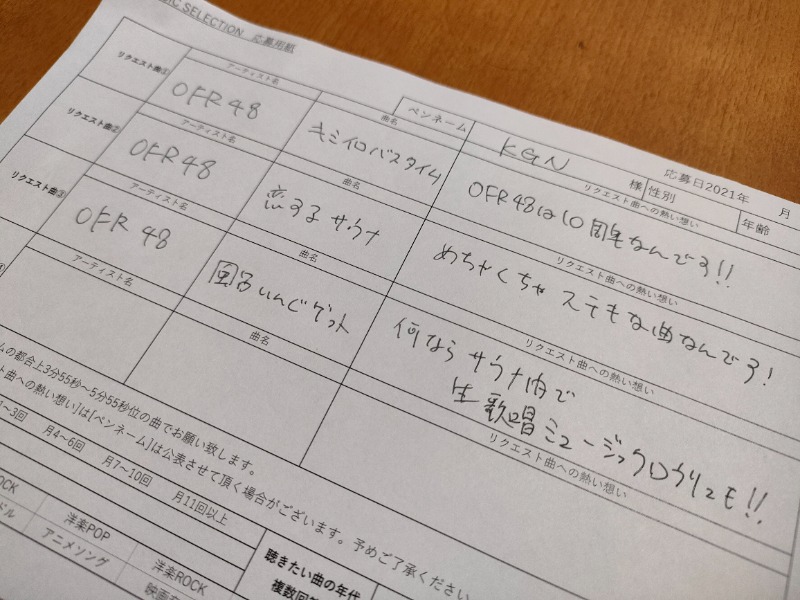 SIC SELECTION 応募用紙
ペンネーム KGN 様 性別 応募日2021年 月
年齢
リクエスト曲①
アーティスト名
OFR48
曲名
キミイロバスタイム
リクエスト曲への熱い想い
OFR48は10周年なんです!!
リクエスト曲②
アーティスト名
OFR48
曲名
恋するサウナ
リクエスト曲への熱い想い
めちゃくちゃステキな曲なんです!
リクエスト曲③
アーティスト名
OFR48
曲名
風呂いんぐゲット
リクエスト曲への熱い想い
何ならサウナ内で
生歌唱ミュージックロウリュも!!
アーティスト名
曲名
リクエスト曲への熱い想い
ムの都合上3分55秒~5分55秒位の曲でお願い致します。
スト曲への熱い想い]は[ペンネーム]は公表させて頂く場合がございます。予めご了承ください。
1~3回 月4~6回 月7~10回 月11回以上
ROCK 洋楽POP 洋楽ROCK
ドル アニメソング 映画
聴きたい曲の年代
複数回